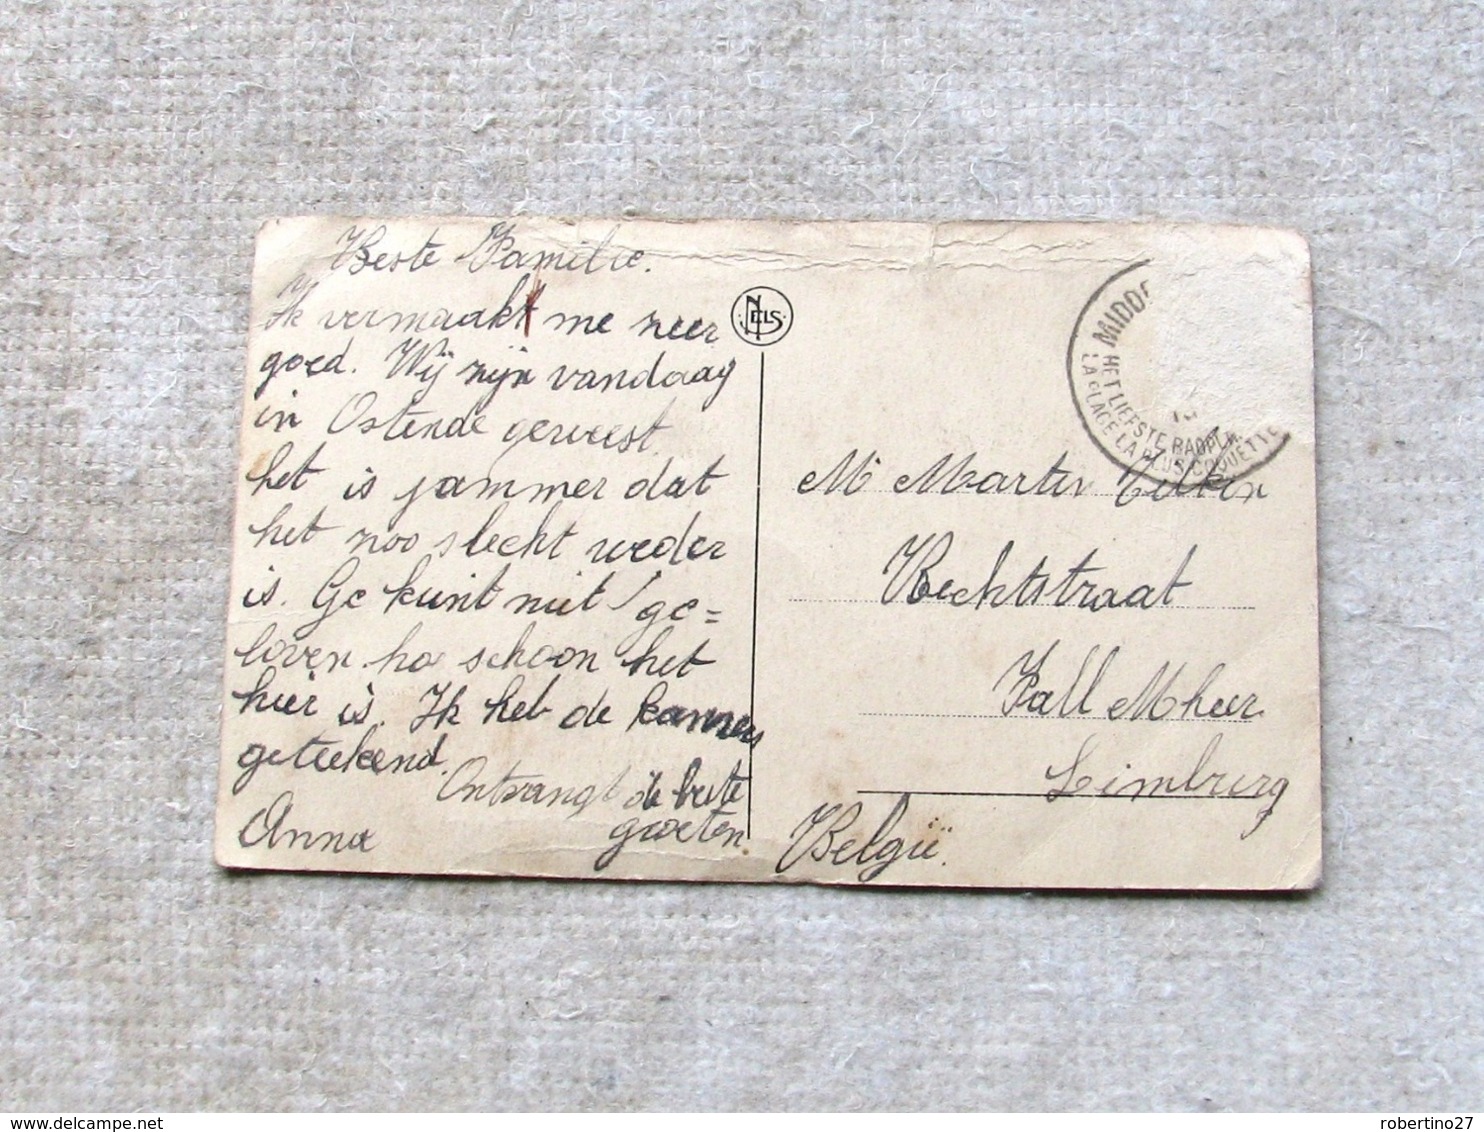 Beste Familie.
Ik vermaakt me zeer
goed. Wij zijn vandaag
in Ostende geweest.
het is jammer dat
het zoo slecht weder
is. Ge kunt niet ge=
loven hoe schoon het
hier is. Ik heb de kamers
geteekend.
Ontvangt de beste
groeten.
Anna
NELS
MIDD
HET LIEFSTE BADPL
LA PLAGE LA PLUS COQUETTE
Mr Martin
Rechtstraat
Vall Mheer
Limburg
België.
robertino27